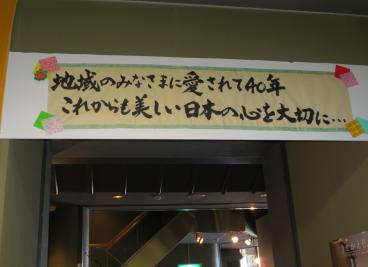 地域のみなさまに愛されて40年
これからも美しい日本の心を大切に…